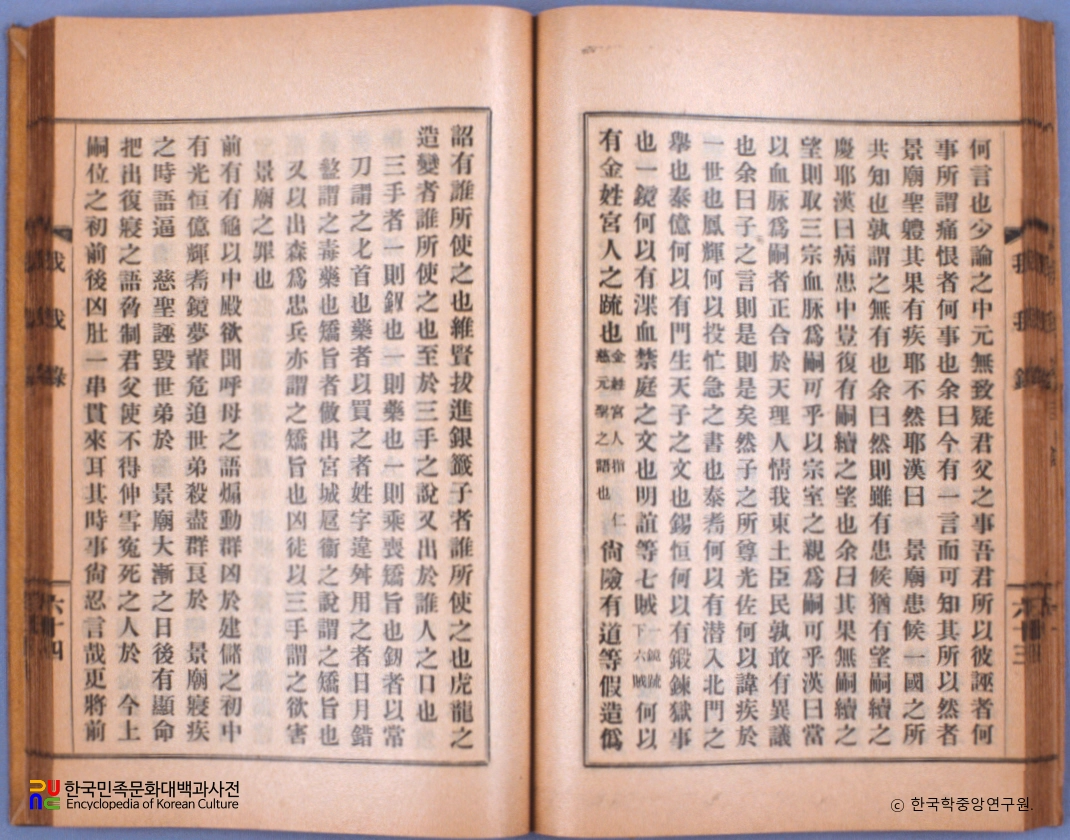 何言也少論之中元無致疑君父之事吾君所以彼誣者何
事所謂痛恨者何事也余曰今有一言而可知其所以然者
景廟聖軆其果有疾耶不然耶漢曰 景廟患候一國之所
共知也孰謂之無有也余曰然則雖有患候猶有望嗣續之
慶耶漢曰病患中豈復有嗣續之望也余曰其果無嗣續之
望則取三宗血脉爲嗣可乎以宗室之親爲嗣可乎漢曰當
以血脉爲嗣者正合於天理人情我東土臣民孰敢有異議
也余曰子之言則是則是矣然子之所尊光佐何以諱疾於
一世也鳳輝何以投忙急之書也泰耉何以有潜入北門之
擧也泰億何以有門生天子之文也錫恒何以有鍛鍊獄事
也一鏡何以有渫血禁庭之文也明誼等七賊 一鏡疏下六賊 何以
有金姓宮人之䟽也 金姓宮人指 仁慈元聖之語也 尙險有道等假造僞
詔有誰所使之也維賢拔進銀籤子者誰所使之也虎龍之
造變者誰所使之也至於三手之說又出於誰人之口也
三手者一則釼也一則藥也一則乘喪矯旨也釼者以常
刀謂之匕首也藥者以買之者姓字違舛用之者日月錯
盭謂之毒藥也矯旨者做出宮城扈衞之說謂之矯旨也
又以出森爲忠兵亦謂之矯旨也凶徒以三手謂之欲害
景廟之罪也
前有有龜以中殿欲聞呼母之語煽動群凶於建儲之初中
有光恒億輝耉鏡夢輩危迫世弟殺盡群良於 景廟寢疾
之時語逼 慈聖誣毀世弟於 景廟大漸之日後有顯命
把出復寢之語脅制君父使不得伸雪寃死之人於 今上
嗣位之初前後凶肚一串貫來耳其時事尙忍言哉更將前
我我錄
六十三
六十四
한국민족문화대백과사전
Encyclopedia of Korean Culture
ⓒ 한국학중앙연구원.